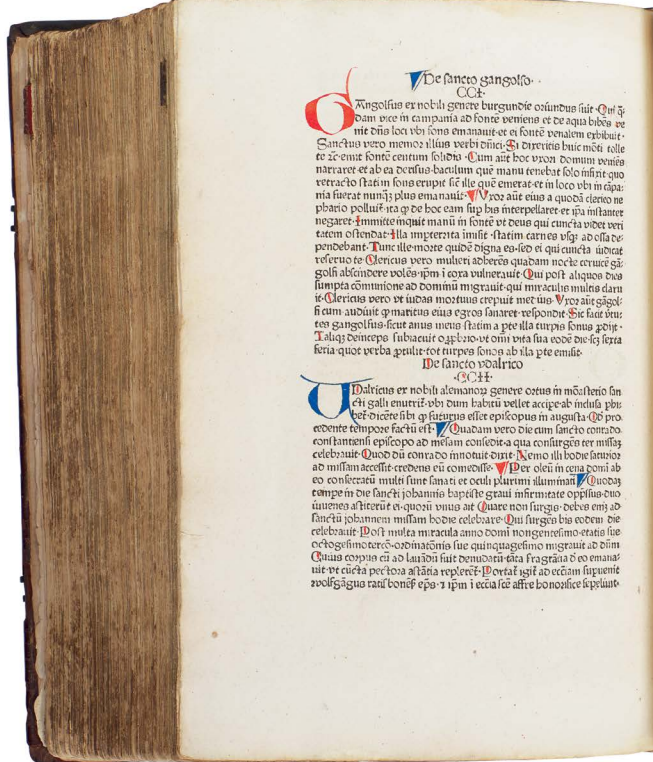 De sancto gangolfo·
CCI·
GAngolfus ex nobili genere burgundie oriundus fuit·Qui q̄-
dam vice in campania ad fontē veniens et de aqua bibēs ve
nit dn̄s loci vbi fons emanauit·et ei fontē venalem exhibuit·
Sanctus vero memor illius verbi dn̄ici·Si dixeritis huic mōti tolle
te ⁊c·emit fontē centum solidis·Cum aūt hoc vxori domum veniēs
narraret·et ab ea derisus·baculum que manu tenebat solo infixit·quo
retracto statim fons erupit sic̄ ille quē emerat·et in loco vbi in cāpa-
nia fuerat nunq̄ꝫ plus emanauit·Vxor aūt eius a quodā clerico ne
phario polluit̄·ita ꝙ de hoc eam sup̄ his interpellaret·et ip̄a instanter
negaret·Immitte inquit manū in fontē vt deus qui cuncta videt veri
tatem ostendat·Illa imperterrita imisit·statim carnes vsqꝫ ad ossa de-
pendebant·Tunc ille·morte quidē digna es·sed ei qui cuncta iudicat
reseruo te·Clericus vero mulieri adherēs quadam nocte ceruicē gā-
golfi abscindere volēs·ip̄m i coxa vulnerauit·Qui post aliquos dies
sumpta cōmunione ad dominū migrauit·qui miraculis multis claru
it·Clericus vero vt iudas mortuus crepuit medius·Vxor aūt gāgol-
fi cum audiuit ꝙ maritus eius egros sanaret·respondit·Sic facit v̄tu-
tes gangolfus·sicut anus meus statim a p̱te illa turpis sonus ꝓdijt·
Taliqꝫ deinceps subiacuit opp̱brio·vt omni vita sua eodē die·scꝫ sexta
feria·quot verba ꝓtulit·tot turpes sonos ab illa p̱te emisit·
De sancto vdalrico
·CCII·
VDalricus ex nobili alemanoꝝ genere ortus in mōasterio san
cti galli enutrit̄·vbi dum habitū vellet accipe·ab inclusa phi-
bet̄·dicēte sibi ꝙ futurus esset episcopus in augusta·Qd̄ pro
cedente tempore factū est·Quadam vero die cum sancto conrado
constantiensi episcopo ad mēsam consedit·a qua consurgēs ter missaꝫ
celebrauit·Quod dū conrado innotuit dixit·Nemo illi hodie saturior
ad missam accessit·credens eū comedisse·Per oleū in cena domi ab
eo consecratū multi sunt sanati et oculi plurimi illuminati·Quodaꝫ
tempe in die sancti johannis baptiste graui infirmitate opp̄ssus·duo
iuuenes astiterūt ei·quorū vnus ait Quare non surgis·debes em̄ꝫ ad
sanctū johannem missam hodie celebrare·Qui surgēs his eodem die
celebrauit·Post multa miracula anno domi nongentesimo·etatis sue
octogesimotercō·ordinatōnis sue quinquagesimo migrauit ad dūm
Cuius corpus cū ad lauādū fuit denudatū·tāta fragrātia d̄ eo emana-
uit·vt cūcta pectora astātia repleret̄·Portat̄ igit̄ ad ecc̄iam·sup̱uenit
wolfgāgus ratisbonēs̄ ep̄s·⁊ ip̄m i ecc̄ia sc̄e affre honorifice sepeliuit·